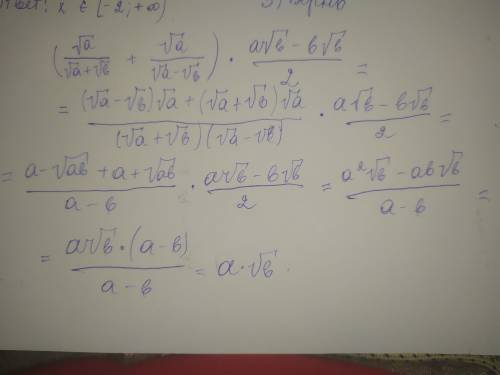 ответ: x ∈ [-2; +∞)
(√a/(√a+√b) + √a/(√a-√b)) · (a√b - b√b)/2 =
= ((√a-√b)√a + (√a+√b)√a)/((√a+√b)(√a-√b)) · (a√b - b√b)/2 =
= (a-√ab + a+√ab)/(a-b) · (a√b - b√b)/2 = (a²√b - ab√b)/(a-b) =
= (a√b·(a-b))/(a-b) = a·√b